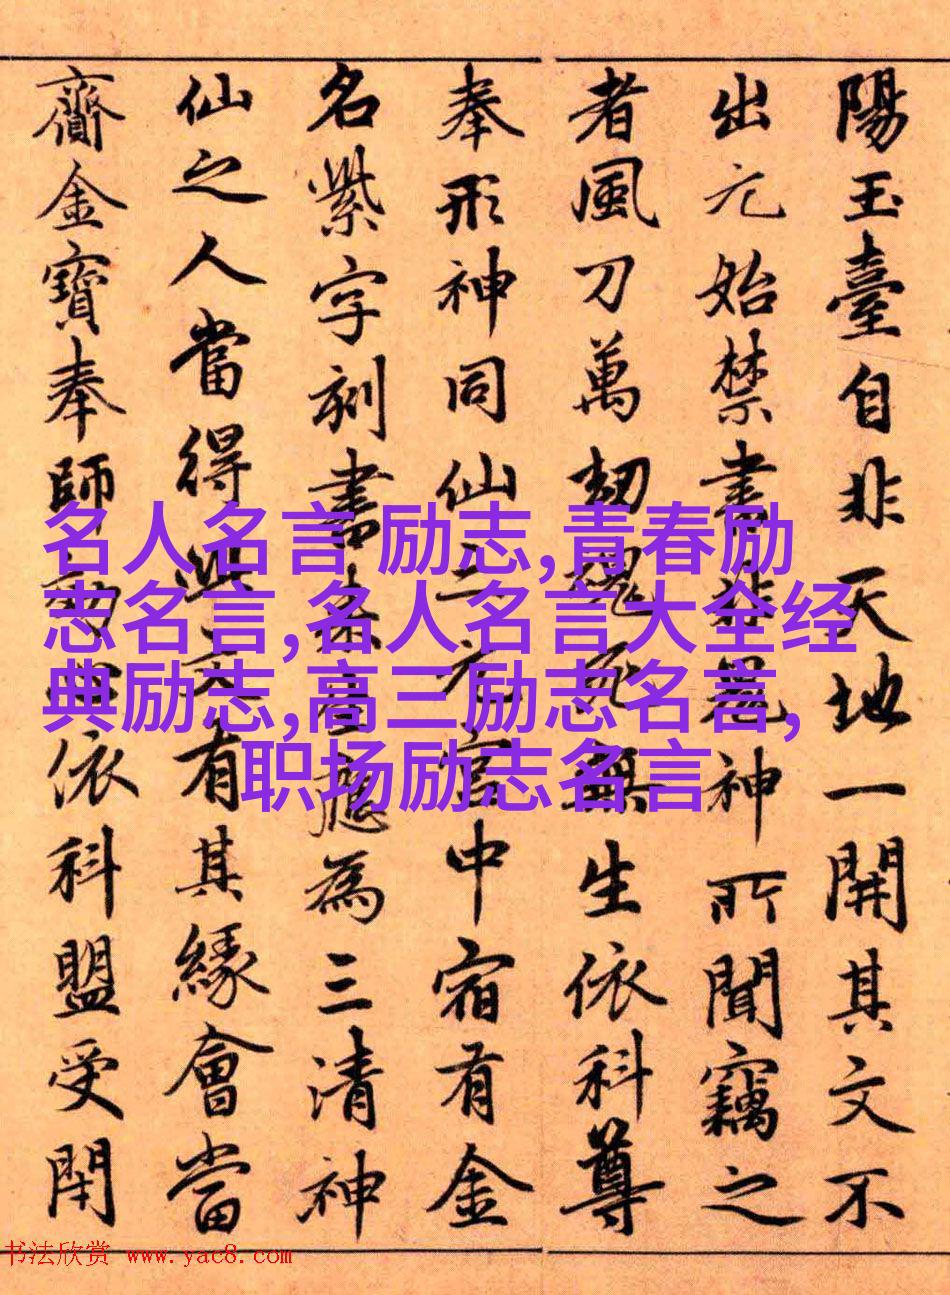 陽玉臺自非天地一開其文不
出元始禁書非鬼神所聞竊之
者風刀萬劫魂死無生依科尊
奉形神同仙三元宮中宿有金
名紫字刻書應為三清神
仙之人當得此文有其緣會當
齎金寶奉師依科盟受閇
名人名言 励志,青春励
志名言,名人名言大全经
典励志,高三励志名言,
职场励志名言
书法欣赏 www.yac8.com